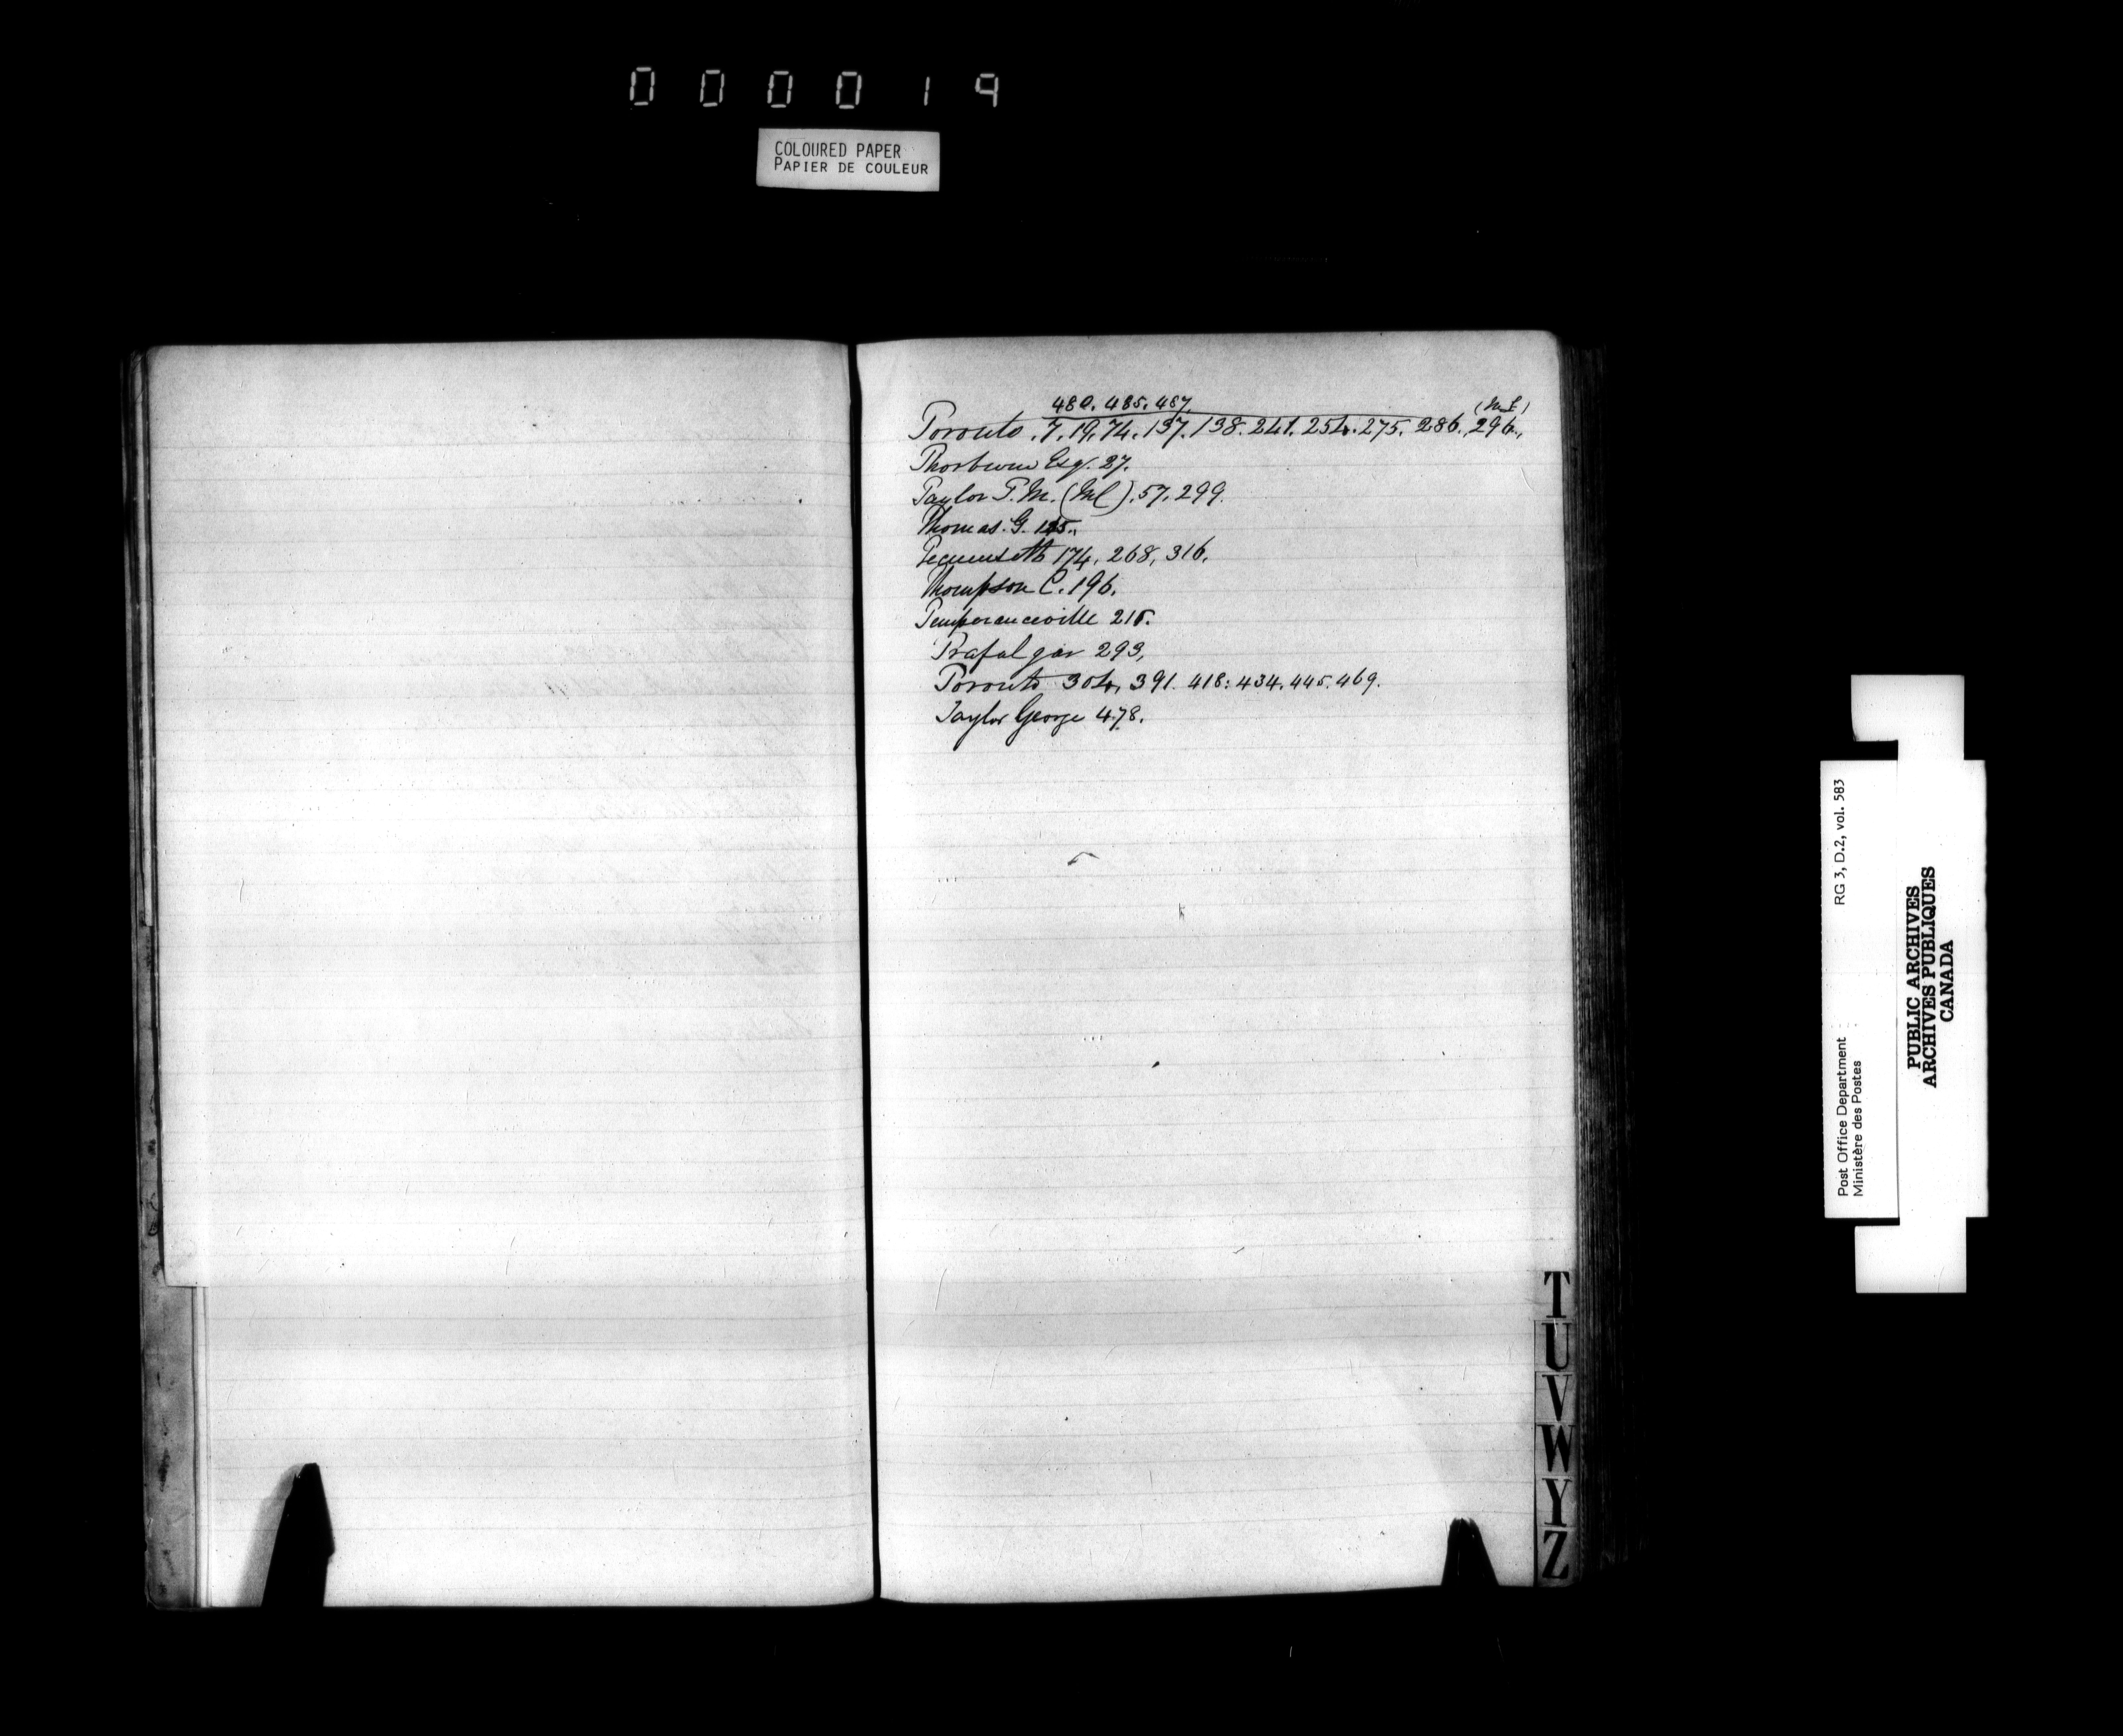 000019
COLOURED PAPER
PAPIER DE COULEUR
480. 485. 487
Toronto .7.19.74.137.138.241.254.275.286.296.,
Thorburn Esq. 27.
Taylor T. M. (Ml). 57. 299.
Thomas. G.
Tecumseth 174, 268, 316.
Thompson C. 196.
Temperanceville 215.
Trafalgar 293,
Toronto 304, 391. 418: 434. 445. 469.
Taylor George 478.
T
U
V
W
Y
Z
Post Office Department RG 3, D.2, vol. 583
Ministère des Postes
PUBLIC ARCHIVES
ARCHIVES PUBLIQUES
CANADA